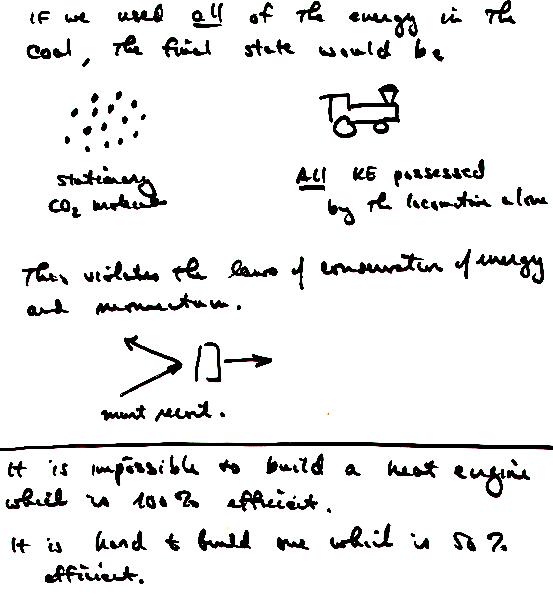 IF we used all of the energy in the
coal, the final state would be
stationary
CO2 molecules
All KE possessed
by the locomotive alone
This violates the laws of conservation of energy
and momentum.
must recoil.
It is impossible to build a heat engine
which is 100% efficient.
It is hard to build one which is 50%
efficient.